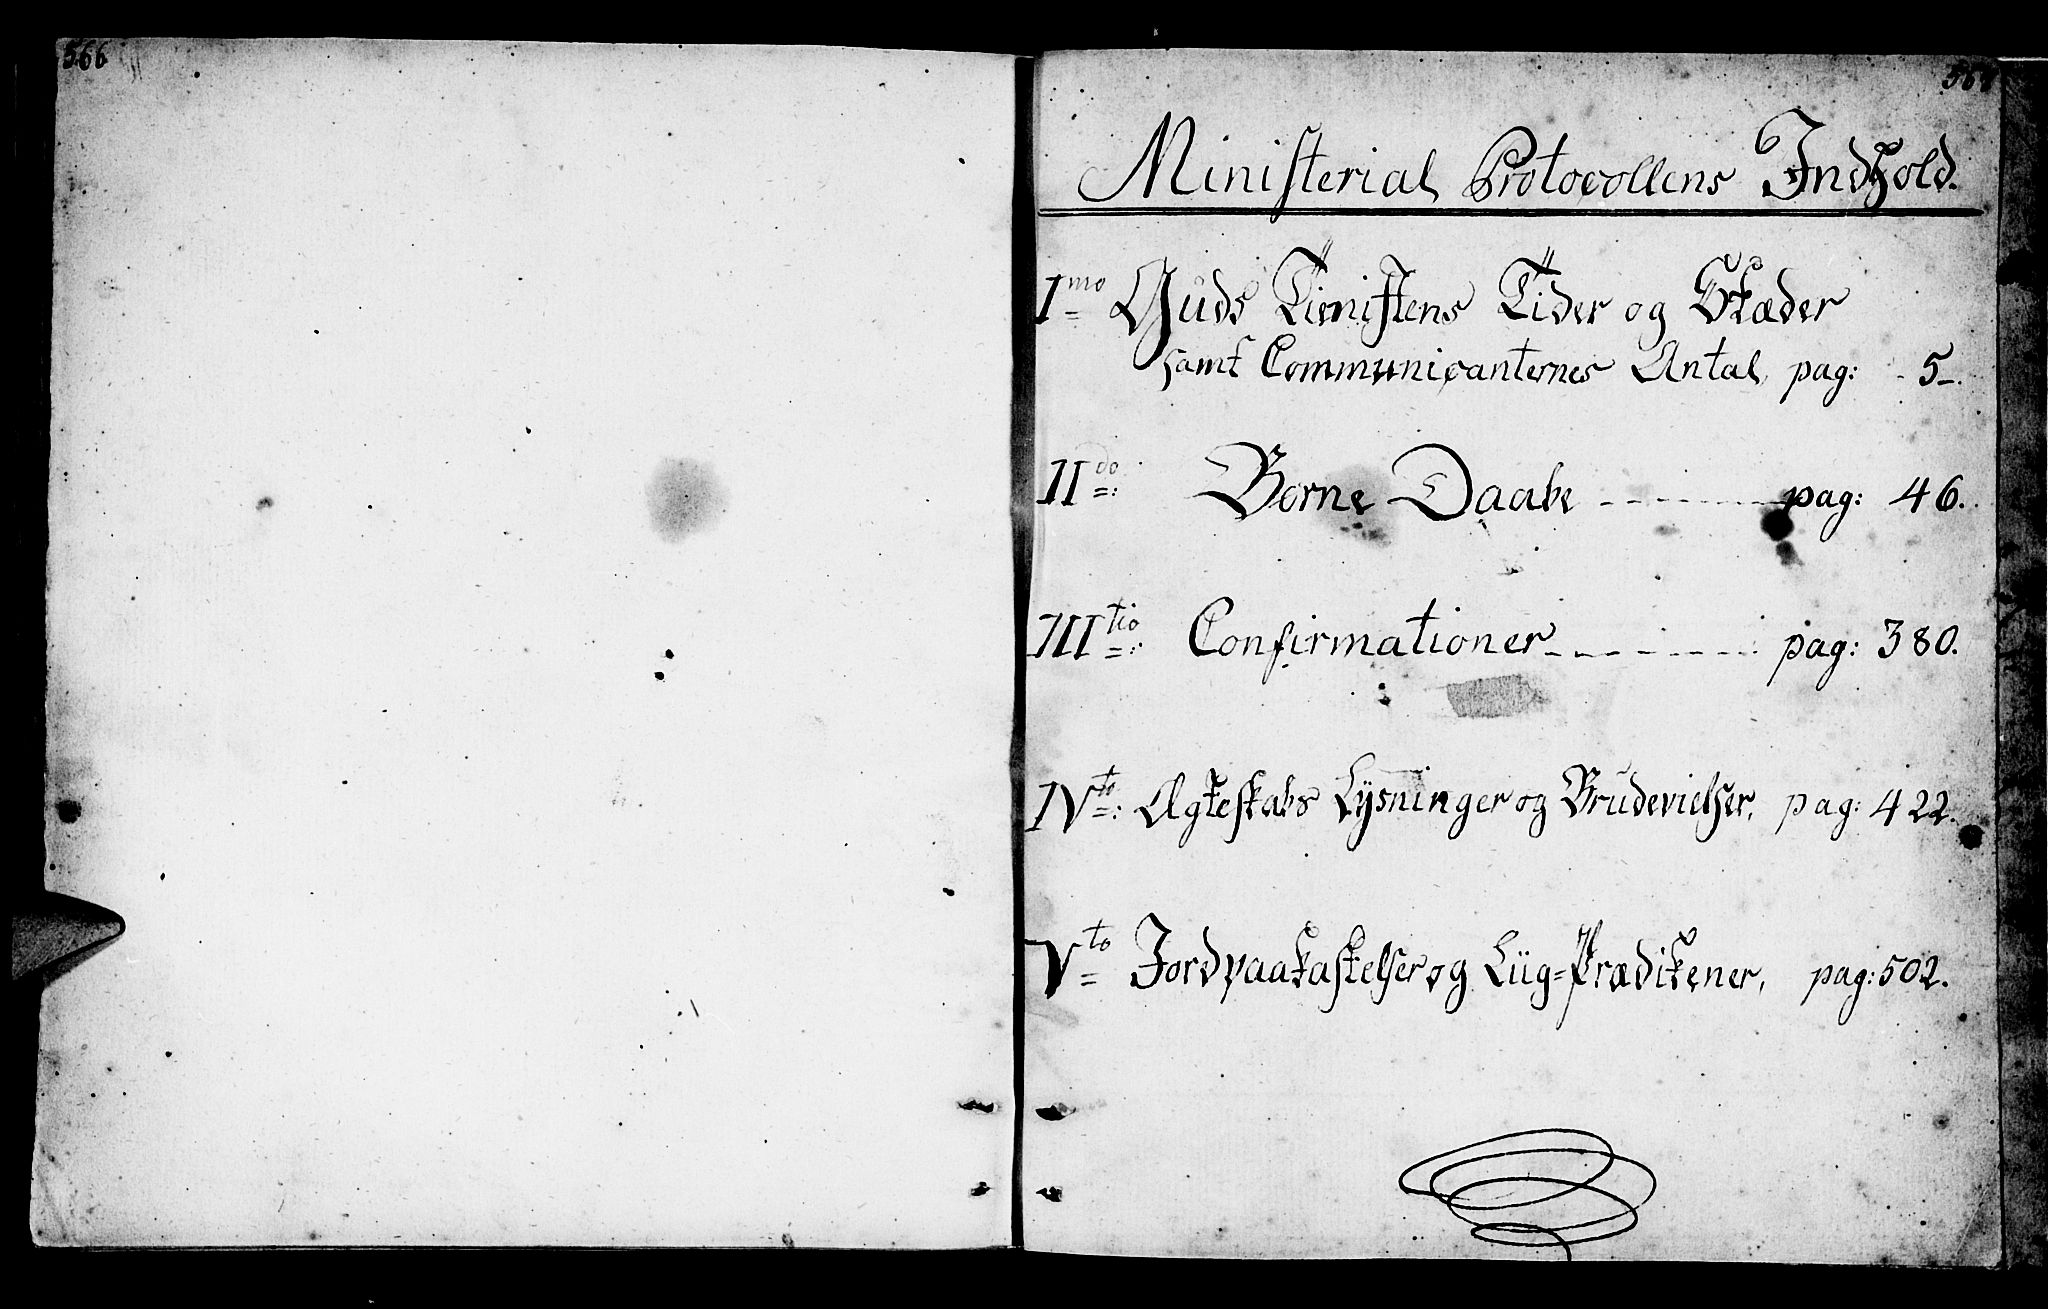 566
567
Ministerial Protocollens Indhold.
Imo Guds Tienistens Tider og Stæder
samt Communicanternes Antal, pag: 5.
IIdo: Børne Daabe pag: 46.
IIItio: Confirmationer pag: 380.
IVto: Ægteskabs Lysninger og Brudevielser, pag: 422.
Vto Jordpaakastelser og Liig=Prædikener, pag: 502.